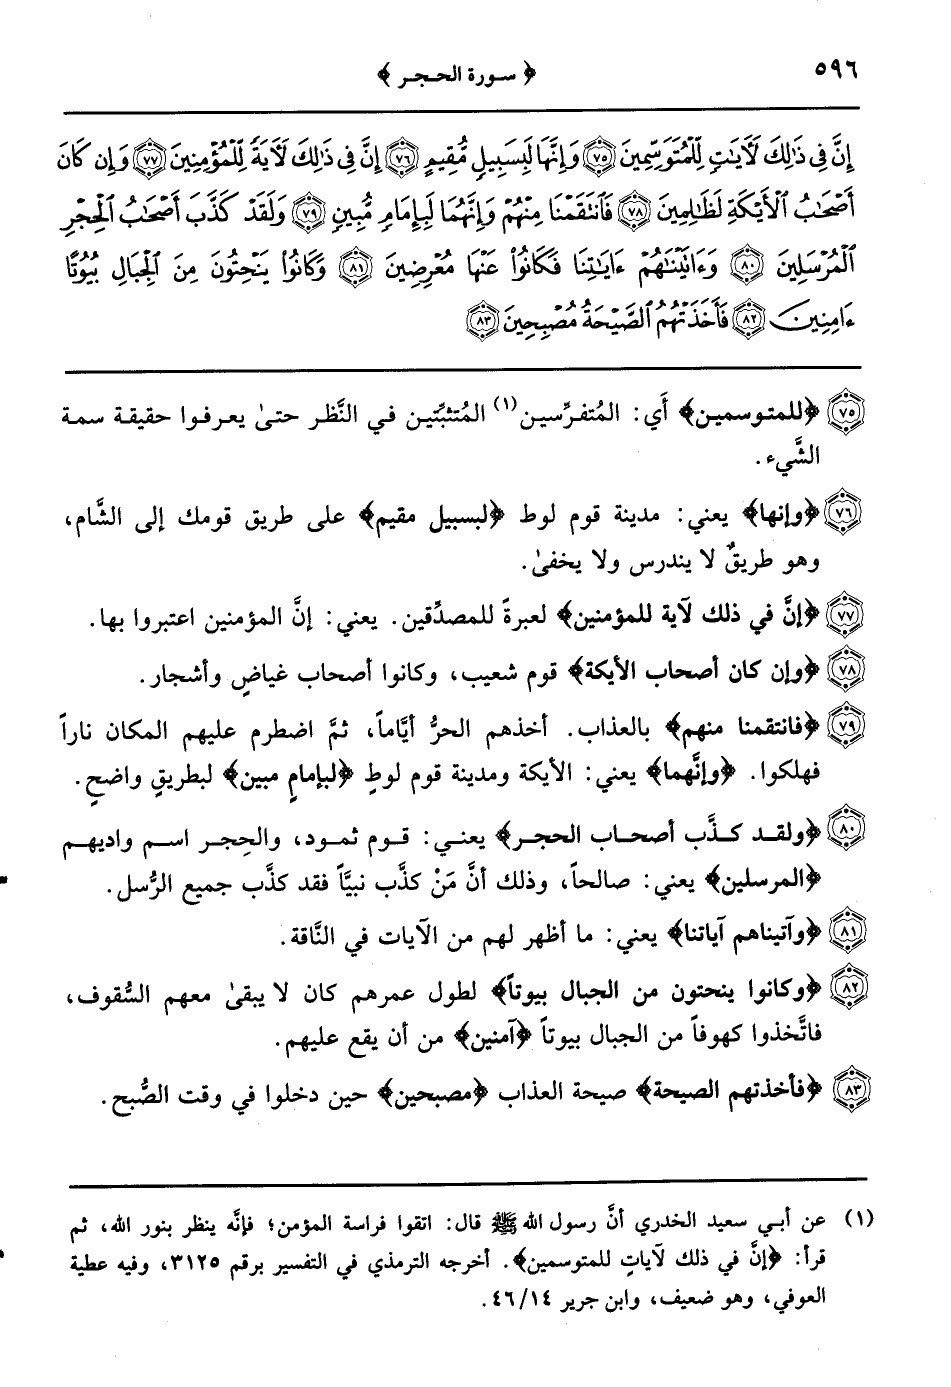 ٥٩٦
﴿ سورة الحجر ﴾
إِنَّ فِي ذَٰلِكَ لَآيَٰتٍ لِّلْمُتَوَسِّمِينَ ٧٥ وَإِنَّهَا لَبِسَبِيلٍ مُّقِيمٍ ٧٦ إِنَّ فِي ذَٰلِكَ لَآيَةً لِّلْمُؤْمِنِينَ ٧٧ وَإِن كَانَ
أَصْحَٰبُ ٱلْأَيْكَةِ لَظَٰلِمِينَ ٧٨ فَٱنتَقَمْنَا مِنْهُمْ وَإِنَّهُمَا لَبِإِمَامٍ مُّبِينٍ ٧٩ وَلَقَدْ كَذَّبَ أَصْحَٰبُ ٱلْحِجْرِ
ٱلْمُرْسَلِينَ ٨٠ وَءَاتَيْنَٰهُمْ ءَايَٰتِنَا فَكَانُوا۟ عَنْهَا مُعْرِضِينَ ٨١ وَكَانُوا۟ يَنْحِتُونَ مِنَ ٱلْجِبَالِ بُيُوتًا
ءَامِنِينَ ٨٢ فَأَخَذَتْهُمُ ٱلصَّيْحَةُ مُصْبِحِينَ ٨٣
٧٥ ﴿للمتوسمين﴾ أَي: المُتفرِّسين(١) المُتثبِّتين في النَّظر حتىٰ يعرفوا حقيقة سمة
الشَّيء.
٧٦ ﴿وإنها﴾ يعني: مدينة قوم لوط ﴿لبسبيل مقيم﴾ على طريق قومك إلى الشَّام،
وهو طريقٌ لا يندرس ولا يخفىٰ.
٧٧ ﴿إنَّ في ذلك لآية للمؤمنين﴾ لعبرةً للمصدِّقين. يعني: إنَّ المؤمنين اعتبروا بها.
٧٨ ﴿وإن كان أصحاب الأيكة﴾ قوم شعيب، وكانوا أصحاب غياضٍ وأشجار.
٧٩ ﴿فانتقمنا منهم﴾ بالعذاب. أخذهم الحرُّ أيَّاماً، ثمَّ اضطرم عليهم المكان ناراً
فهلكوا. ﴿وإنَّهما﴾ يعني: الأيكة ومدينة قوم لوطٍ ﴿لبإمامٍ مبين﴾ لبطريقٍ واضحٍ.
٨٠ ﴿ولقد كذَّب أصحاب الحجر﴾ يعني: قوم ثمود، والحِجر اسم واديهم
﴿المرسلين﴾ يعني: صالحاً، وذلك أنَّ مَنْ كذَّب نبيَّاً فقد كذَّب جميع الرُّسل.
٨١ ﴿وآتيناهم آياتنا﴾ يعني: ما أظهر لهم من الآيات في النَّاقة.
٨٢ ﴿وكانوا ينحتون من الجبال بيوتاً﴾ لطول عمرهم كان لا يبقىٰ معهم السُّقوف،
فاتَّخذوا كهوفاً من الجبال بيوتاً ﴿آمنين﴾ من أن يقع عليهم.
٨٣ ﴿فأخذتهم الصيحة﴾ صيحة العذاب ﴿مصبحين﴾ حين دخلوا في وقت الصُّبح.
(١) عن أبي سعيد الخدري أنَّ رسول الله ﷺ قال: اتقوا فراسة المؤمن؛ فإنَّه ينظر بنور الله، ثم
قرأ: ﴿إنَّ في ذلك لآياتٍ للمتوسمين﴾. أخرجه الترمذي في التفسير برقم ٣١٢٥، وفيه عطية
العوفي، وهو ضعيف، وابن جرير ٤٦/١٤.